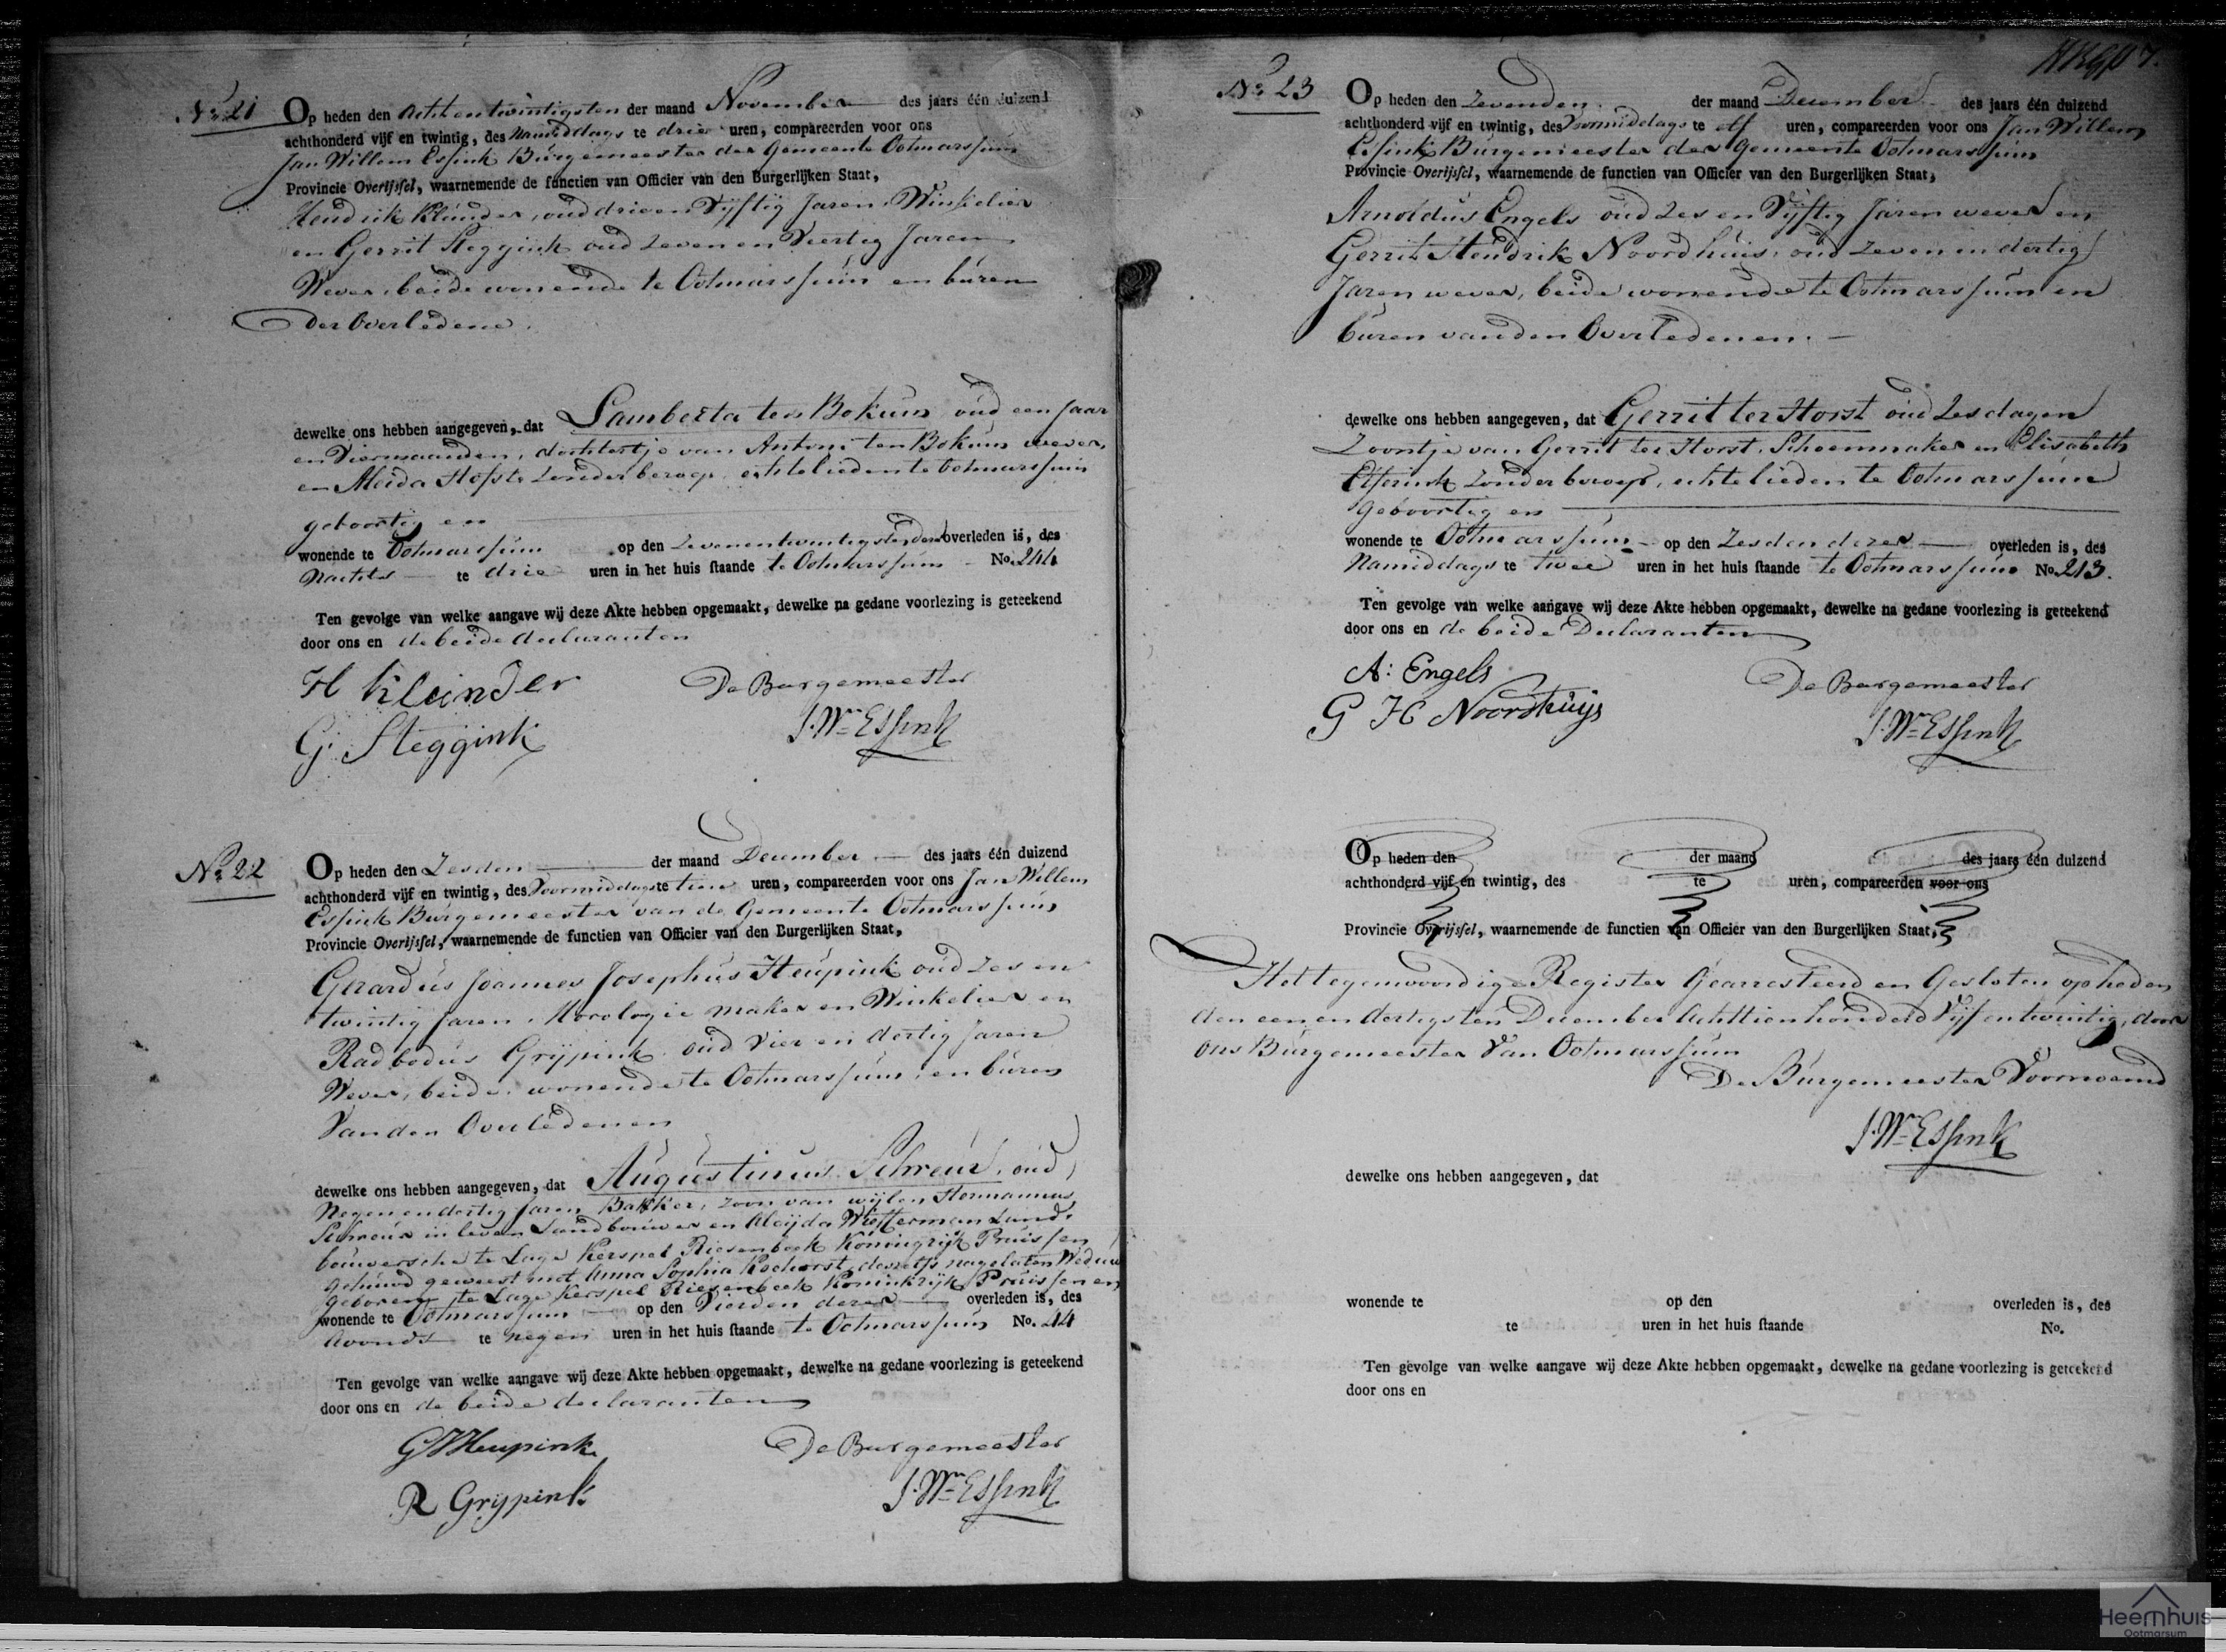 No 21
Op heden den Acht en twintigsten der maand November des jaars één duizend
achthonderd vijf en twintig, des Namiddags te drie uren, compareerden voor ons
Jan Willem Essink Burgemeester der Gemeente Ootmarssum
Provincie Overijssel, waarnemende de functien van Officier van den Burgerlijken Staat,
Hendrik Klunder, oud drie en Vijftig Jaren, Winkelier
en Gerrit Steggink oud Zeven en Veertig Jaren
Wever, beide wonende te Ootmarssum en buren
der Overledene.
dewelke ons hebben aangegeven, dat Lamberta ten Bokum oud een Jaar
en Vier maanden, dochtertje van Antoni ten Bokum wever,
en Aleida Hofste zonder beroep, echtelieden te Ootmarssum
geboortig en
wonende te Ootmarssum op den Zeven en twintigsten dezer overleden is, des
Nachts te drie uren in het huis staande te Ootmarssum No. 244
Ten gevolge van welke aangave wij deze Akte hebben opgemaakt, dewelke na gedane voorlezing is geteekend
door ons en de beide declaranten
H Klunder
De Burgemeester
G. Steggink
J. Wm Essink
No 22
Op heden den Zesden der maand December des jaars één duizend
achthonderd vijf en twintig, des Voormiddags te tien uren, compareerden voor ons Jan Willem
Essink Burgemeester van de Gemeente Ootmarssum
Provincie Overijssel, waarnemende de functien van Officier van den Burgerlijken Staat,
Gerardus Joannes Josephus Heupink oud Zes en
twintig Jaren, Horologie maker en Winkelier en
Radbodus Grijpink oud Vier en dertig Jaren
Wever, beide wonende te Ootmarssum, en buren
Van den Overledenen
dewelke ons hebben aangegeven, dat Augustinus Schreur, oud
Negen en dertig Jaren Bakker, Zoon van wijlen Hermannus
Schreur in leven Landbouwer en Aleijda Westerman Land-
bouwersche te Lage Kerspel Riesenbeek Koningrijk Pruissen
gehuwd geweest met Anna Sophia Kochorst, deszelfs nagelaten Weduw
geboren te Lage Kerspel Riesenbeek Koninkrijk Pruissen en
wonende te Ootmarssum op den Vierden dezer overleden is, des
Avonds te negen uren in het huis staande te Ootmarssum No. 44
Ten gevolge van welke aangave wij deze Akte hebben opgemaakt, dewelke na gedane voorlezing is geteekend
door ons en de beide declaranten
GJJHeupink
De Burgemeester
R Grijpink
J. Wm Essink
No 23
Op heden den Zevenden der maand December des jaars één duizend
achthonderd vijf en twintig, des Voormiddags te elf uren, compareerden voor ons Jan Willem
Essink Burgemeester der Gemeente Ootmarssum
Provincie Overijssel, waarnemende de functien van Officier van den Burgerlijken Staat,
Arnoldus Engels oud Zes en Vijftig Jaren wever en
Gerrit Hendrik Noordhuis, oud Zeven en dertig
Jaren wever, beide wonende te Ootmarssum en
buren van den Overledenen.
dewelke ons hebben aangegeven, dat Gerrit ter Horst oud Zes dagen
Zoontje van Gerrit ter Horst, Schoenmaker en Elisabeth
Elferink Zonder beroep, echtelieden te Ootmarssum
Geboortig en
wonende te Ootmarssum op den Zesden dezer overleden is, des
Namiddags te twee uren in het huis staande te Ootmarssum No. 213.
Ten gevolge van welke aangave wij deze Akte hebben opgemaakt, dewelke na gedane voorlezing is geteekend
door ons en de beide Declaranten
A: Engels
De Burgemeester
G H Noordhuijs
J. Wm Essink
Op heden den der maand des jaars één duizend
achthonderd vijf en twintig, des te uren, compareerden voor ons
Provincie Overijssel, waarnemende de functien van Officier van den Burgerlijken Staat,
Het tegenwoordige Register Gearresteerd en Gesloten op heden
den een en dertigsten December Achttien honderd Vijf en twintig, door
ons Burgemeester Van Ootmarssum
De Burgemeester Voornoemd
J. Wm Essink
dewelke ons hebben aangegeven, dat
wonende te op den overleden is, des
te uren in het huis staande No.
Ten gevolge van welke aangave wij deze Akte hebben opgemaakt, dewelke na gedane voorlezing is geteekend
door ons en
Heemhuis
Ootmarsum